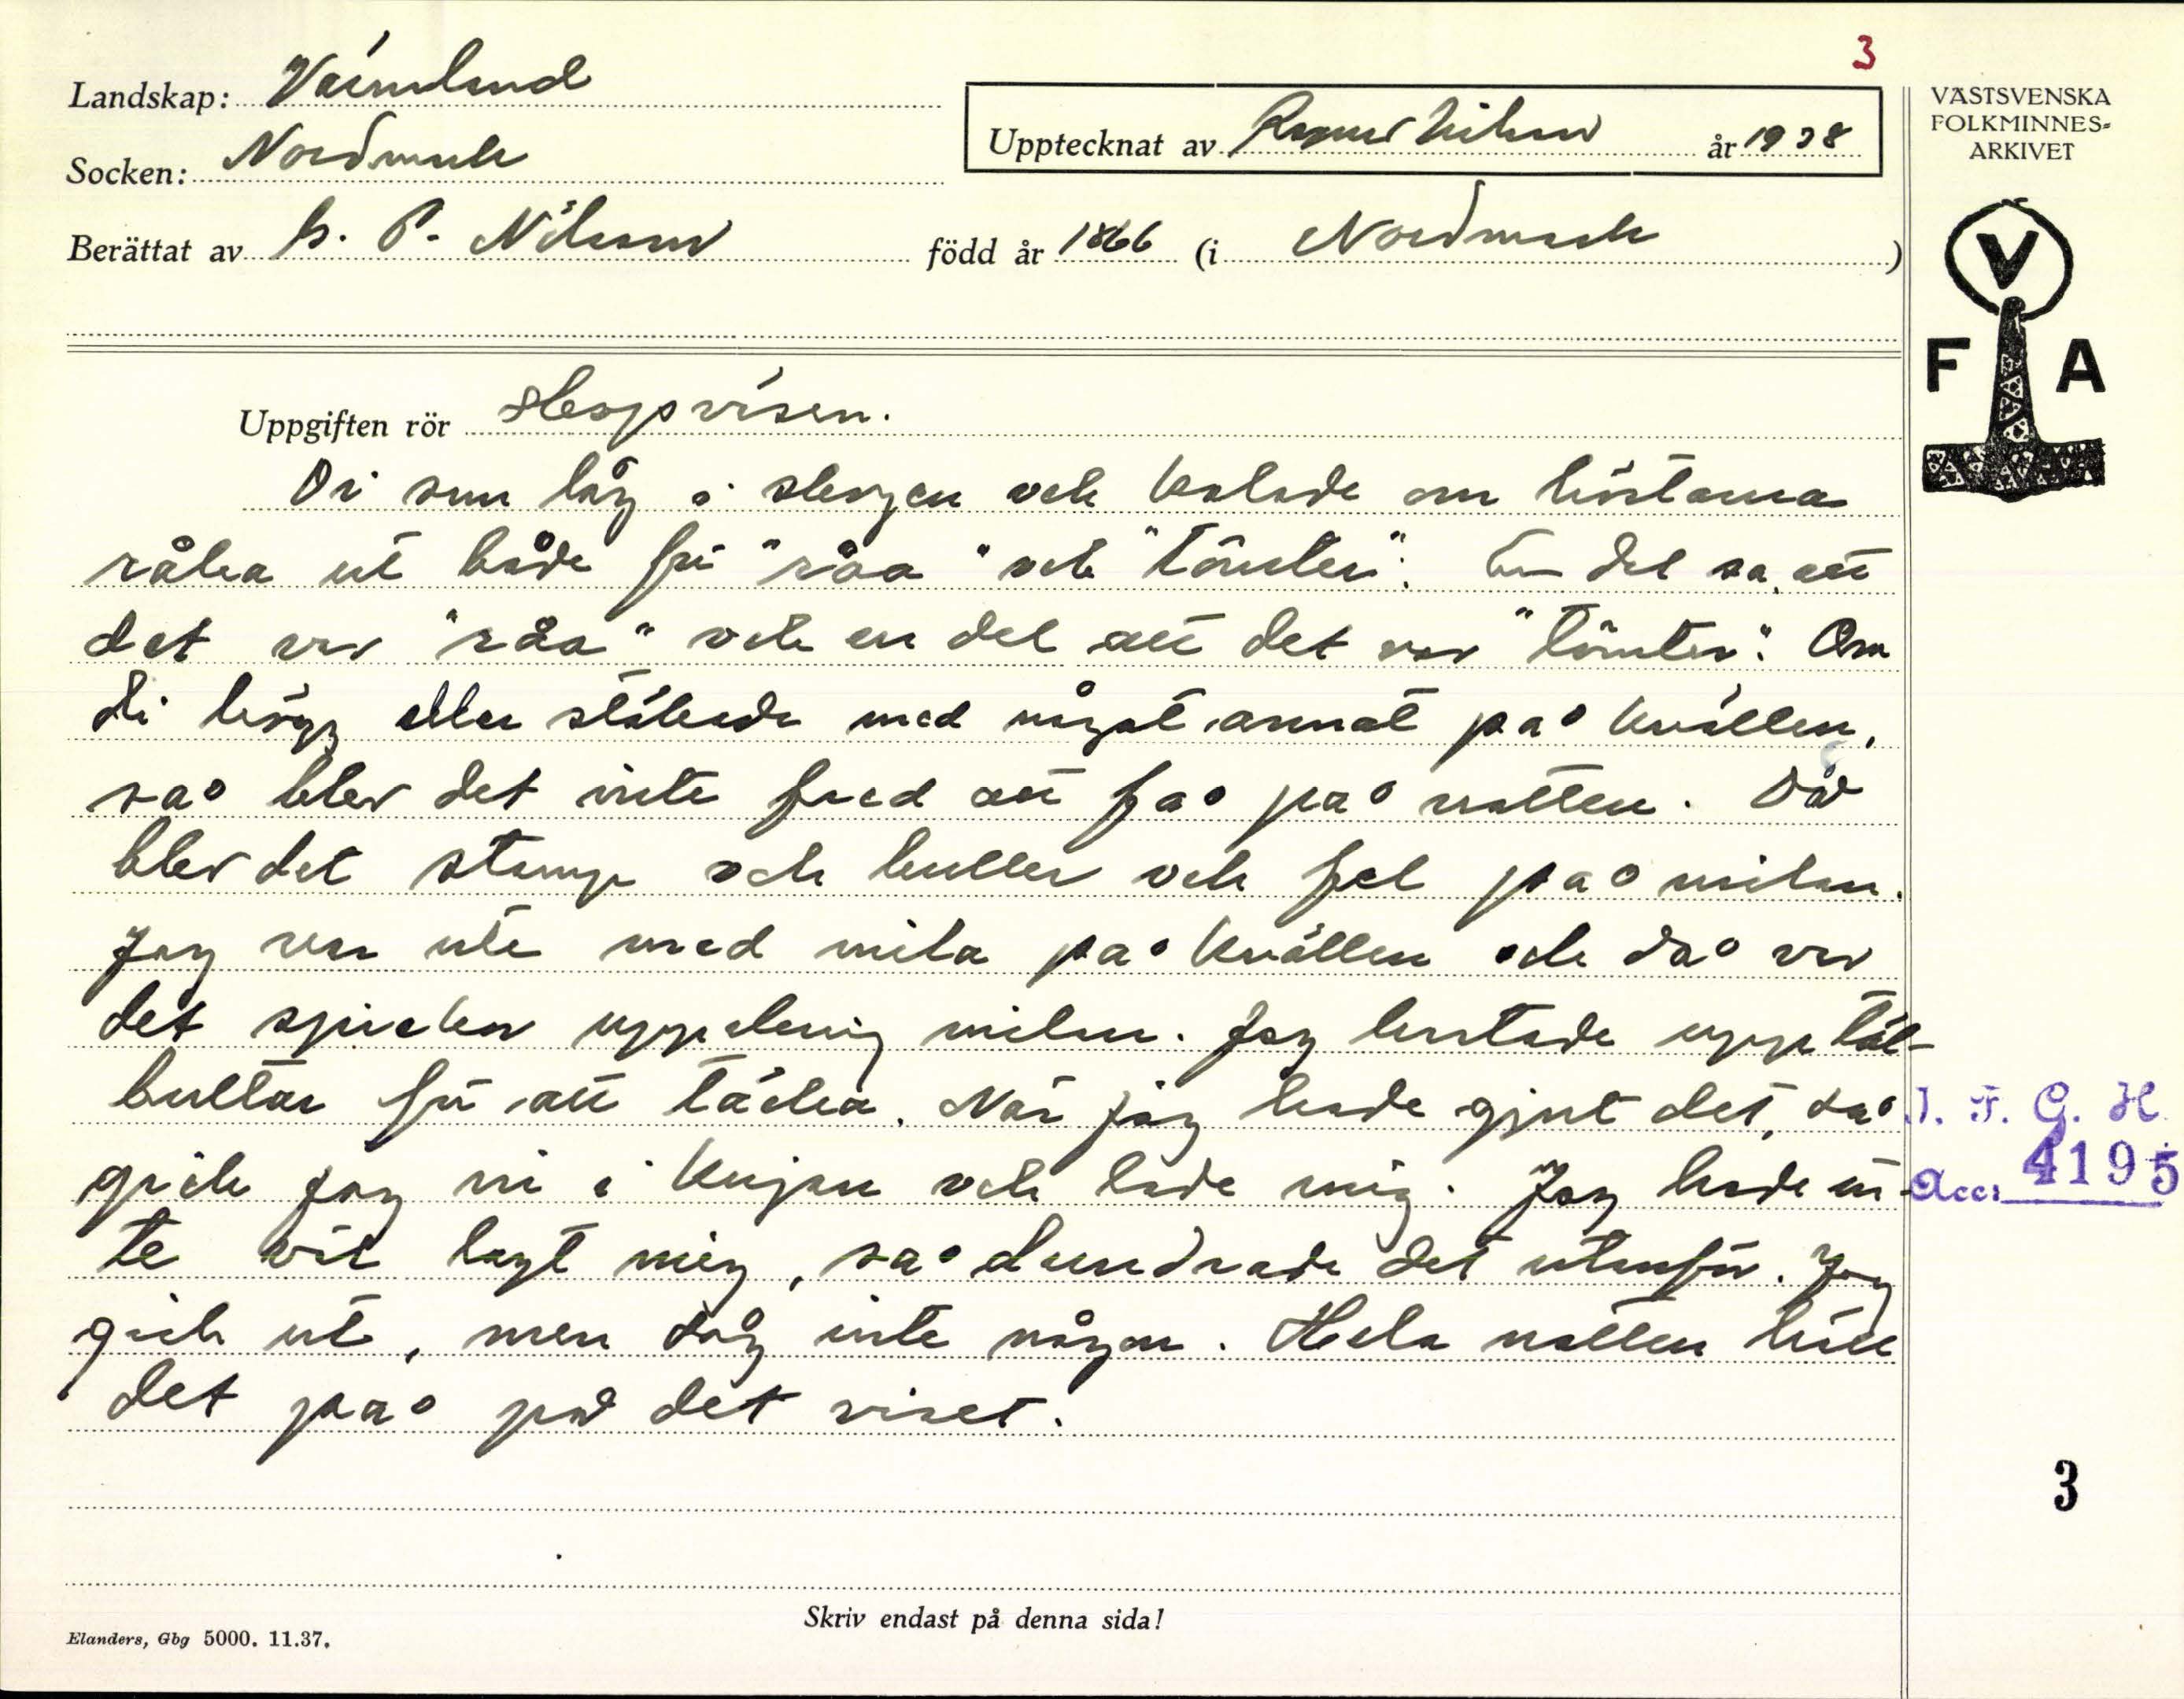 3
Landskap: Värmland
Socken: Nordmark
Upptecknat av Ragnar Nilsson år 1938
Berättat av G. P. Nilsson född år 1866 (i Nordmark)
VÄSTSVENSKA
FOLKMINNES-
ARKIVET
V
F A
Uppgiften rör Skogsväsen.
Di som låg i skogen och kolade om höstarna
råka ut både för "råa" och "tomten". En del sa, att
det var "råa" och en del att det var "tomten". Om
di högg eller stökade med något annat på kvällen,
så blev det inte fred att få på natten. Då
blev det stamp och buller och fel på milan.
Jag var ute med mila på kvällen och då var
det spricker uppkring milan. Jag hostade upp täl-
bultar för att täcka. När jag hade gjort det, så
gick jag in i kojan och lade mig. Jag hade in-
te väl lagt mig, så dundrade det utanför. Jag
gick ut, men såg inte någon. Hela natten höll
det på på det viset.
I. F. G. H
Acc: 4195
3
Skriv endast på denna sida!
Elanders, Gbg 5000. 11.37.